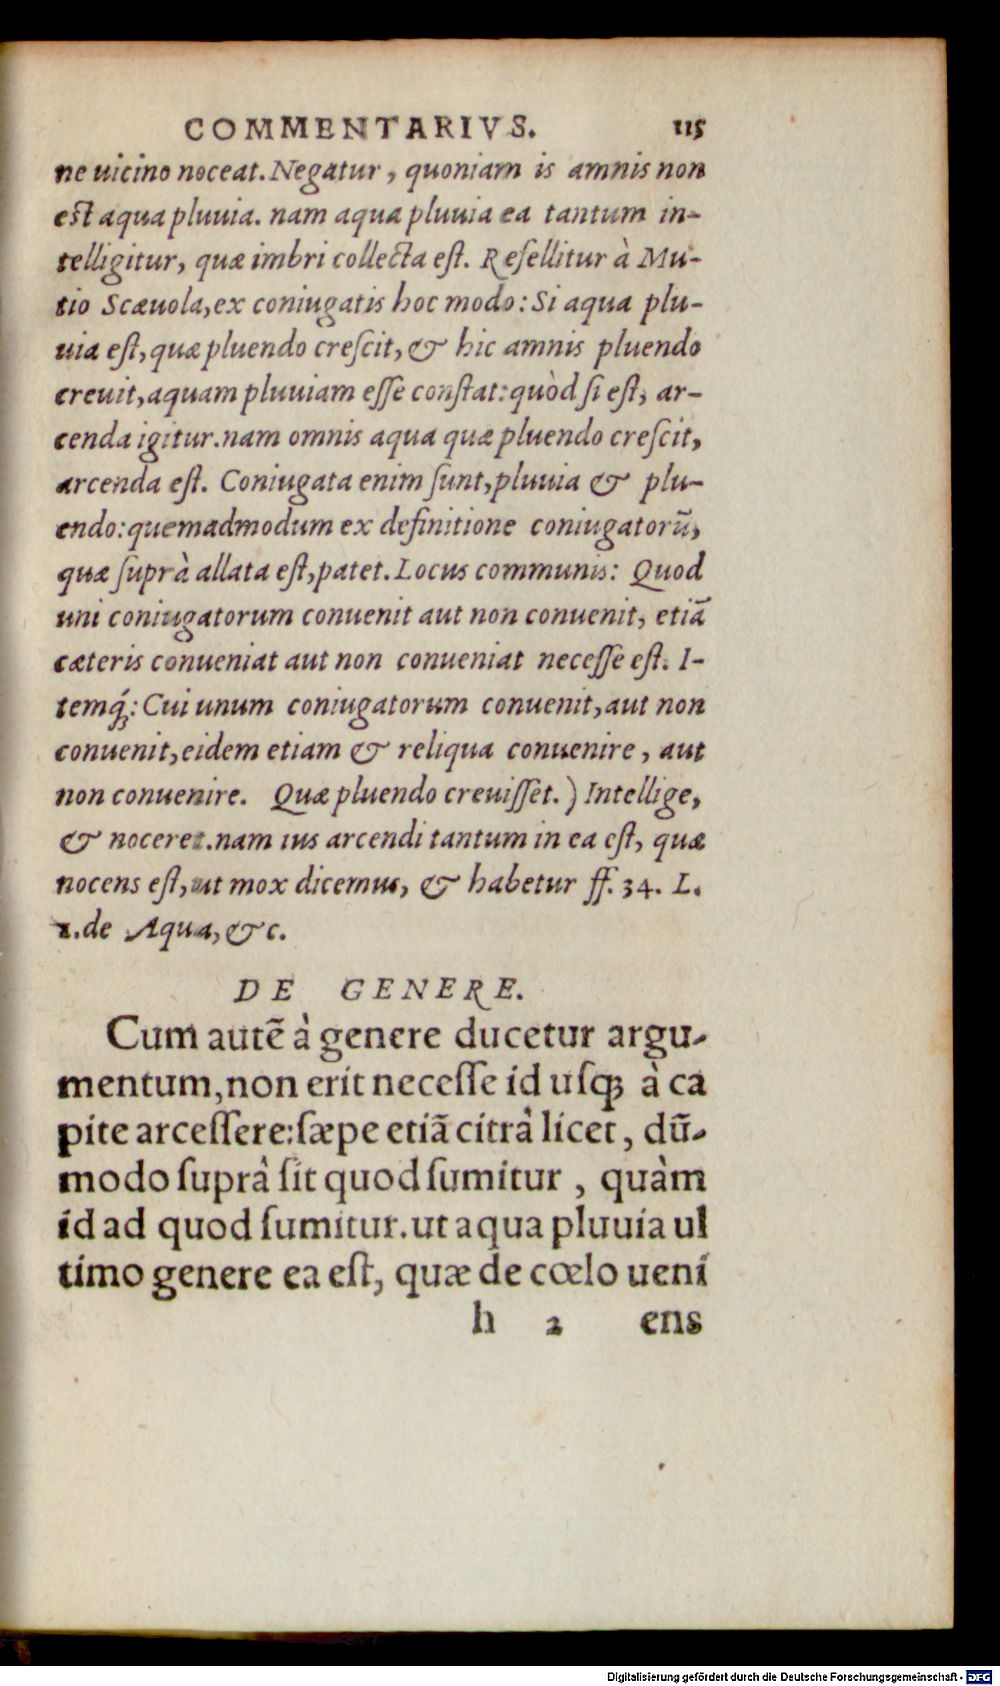 COMMENTARIVS. 115
ne uicino noceat. Negatur, quoniam is amnis non
est aqua pluuia. nam aqua pluuia ea tantum in-
telligitur, quæ imbri collecta eſt. Refellitur à Mu-
tio Scæuola, ex coniugatis hoc modo: Si aqua plu-
uia eſt, quæ pluendo creſcit, & hic amnis pluendo
creuit, aquam pluuiam eſſe conſtat: quòd ſi eſt, ar-
cenda igitur. nam omnis aqua quæ pluendo creſcit,
arcenda eſt. Coniugata enim ſunt, pluuia & plu-
endo: quemadmodum ex definitione coniugatorũ,
quæ ſuprà allata eſt, patet. Locus communis: Quod
uni coniugatorum conuenit aut non conuenit, etiã
cæteris conueniat aut non conueniat neceſſe eſt. I-
temq́ꝫ: Cui unum coniugatorum conuenit, aut non
conuenit, eidem etiam & reliqua conuenire, aut
non conuenire. Quæ pluendo creuiſſet.) Intellige,
& noceret. nam ius arcendi tantum in ea eſt, quæ
nocens eſt, ut mox dicemus, & habetur ff. 34. L.
1. de Aqua, &c.
DE GENERE.
Cum autẽ à genere ducetur argu-
mentum, non erit neceſſe id uſqꝫ à ca
pite arceſſere: ſæpe etiã citrà licet, dũ-
modo ſuprà ſit quod ſumitur, quàm
id ad quod ſumitur. ut aqua pluuia ul
timo genere ea eſt, quæ de cœlo ueni
h 2 ens
Digitalisierung gefördert durch die Deutsche Forschungsgemeinschaft - DFG